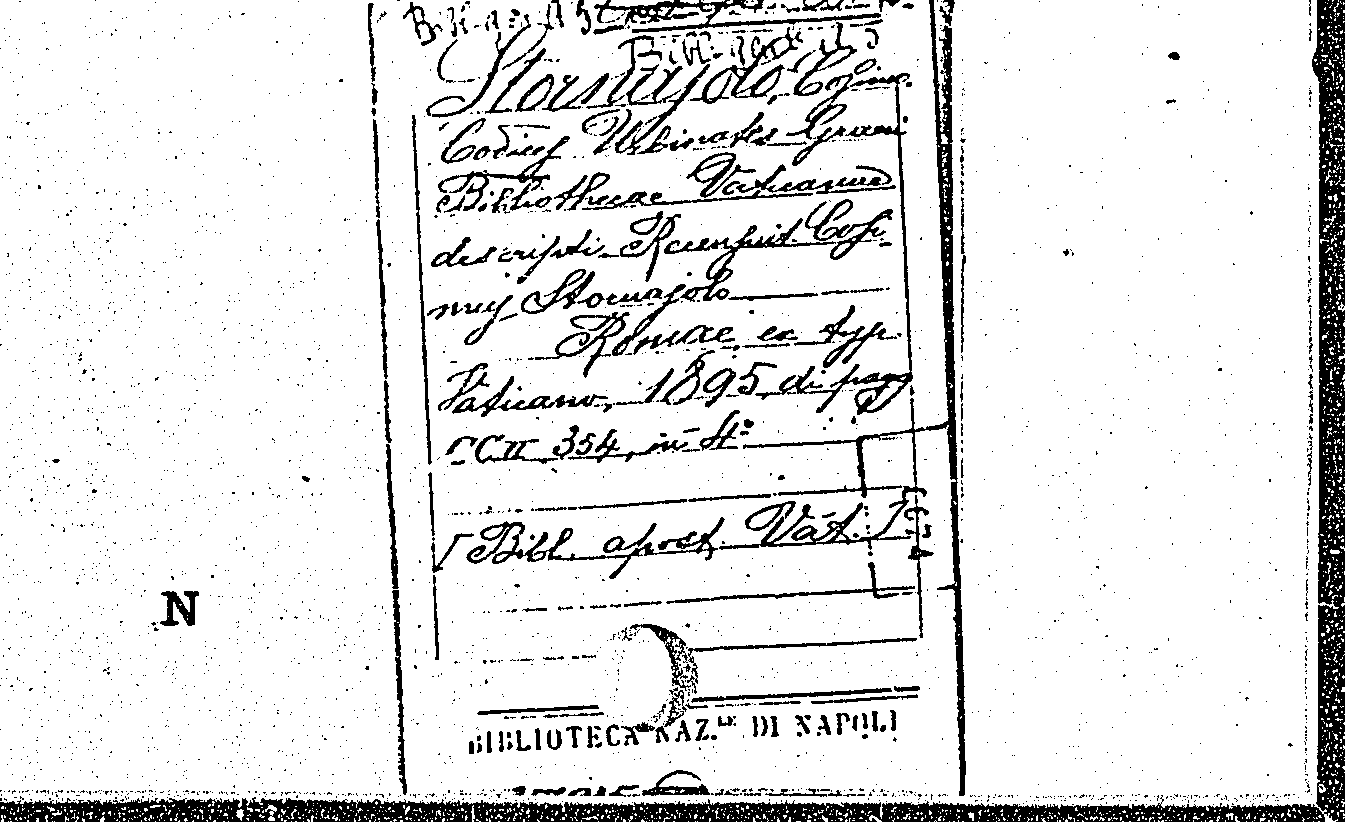 Bibl.
Stornajolo, Cosimo.
Codices Urbinates Graeci
Bibliothecae Vaticanae
descripti. Recensuit Cosi-
mus Stornajolo
Romae, ex typ.
Vaticano, 1895, di pagg
CCII 354, in 4.º
[Bibl. apost. Vat.]
N
BIBLIOTECA NAZ.LE DI NAPOLI